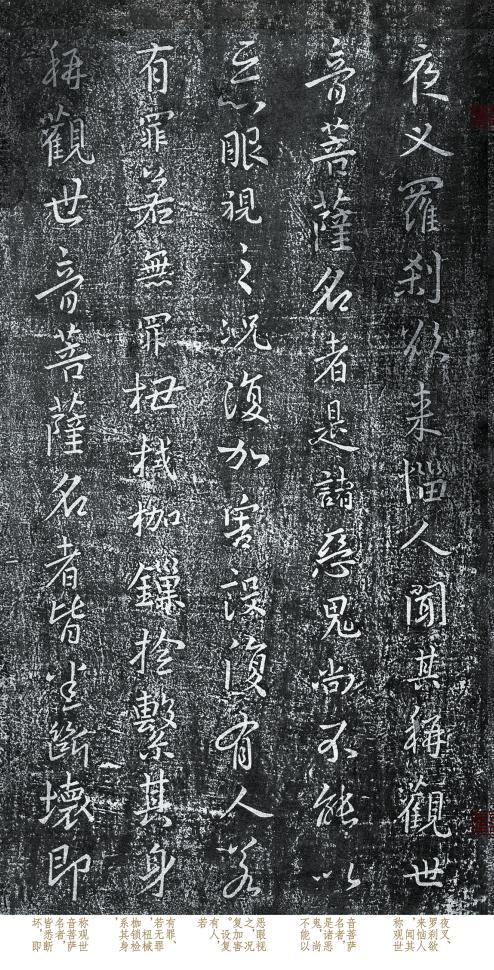 夜叉羅刹欲来惱人聞其稱觀世
音菩薩名者是諸惡鬼尚不能以
惡眼視之況復加害設復有人若
有罪若無罪杻械枷鏁撿繫其身
稱觀世音菩薩名者皆悉斷壞即
夜叉、
罗刹欲
来恼人
,闻其
称观世
音菩萨
名者,
是诸恶
鬼,尚
不能以
恶眼视
之,况
复加害
。设复
有人,
若
有罪、
若无罪
,杻械
枷锁检
系其身
,
称观世
音菩萨
名者,
皆悉断
坏,即